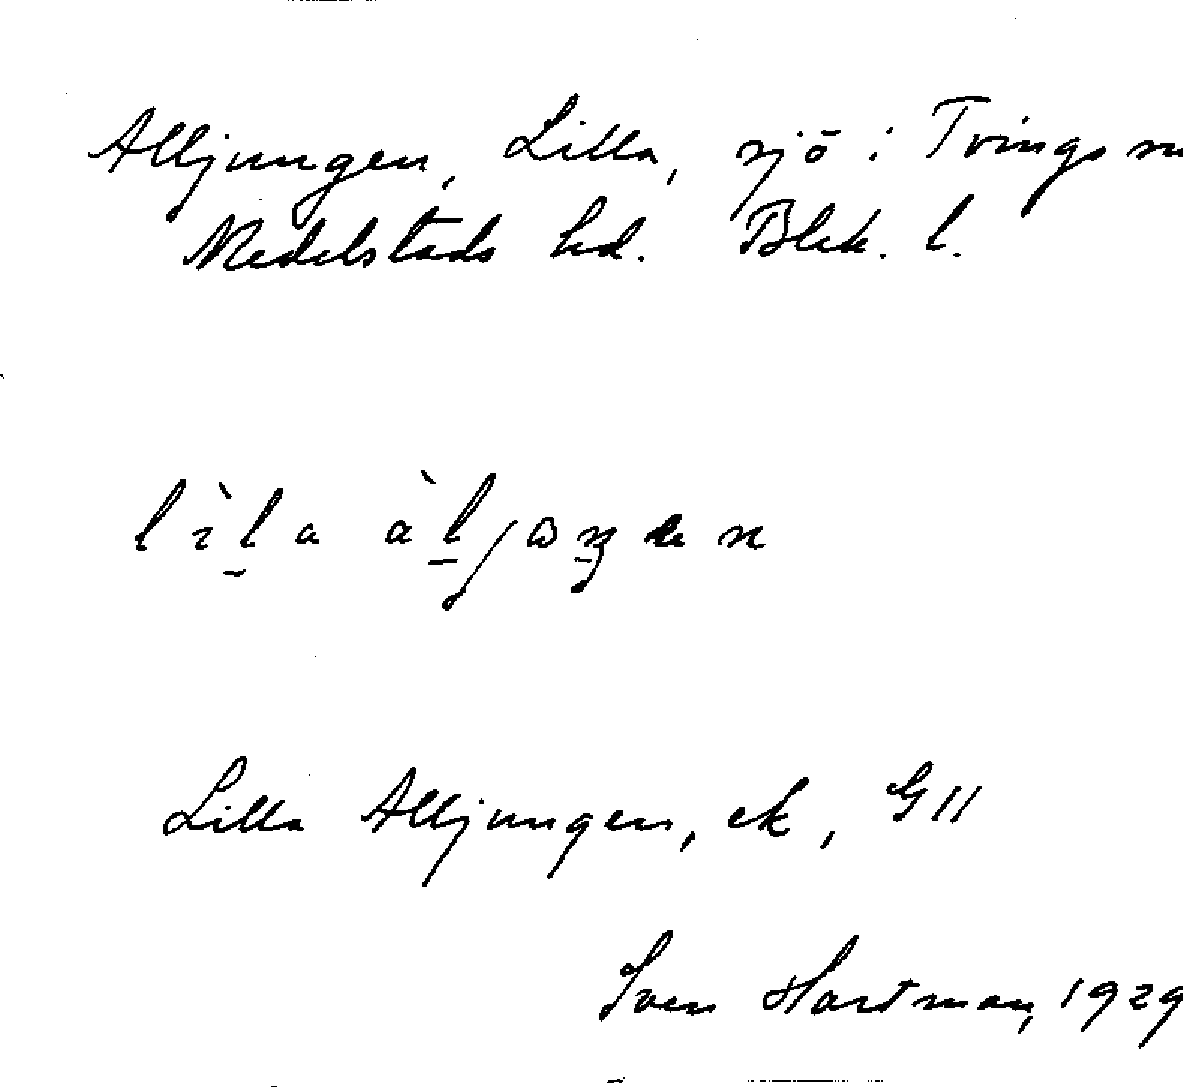 Alljungen, Lilla, sjö i Tvings
Medelstads hd. Blek. l.
lìla àljɷŋen
Lilla Alljungen, ek, G11
Sven Hartman, 1929